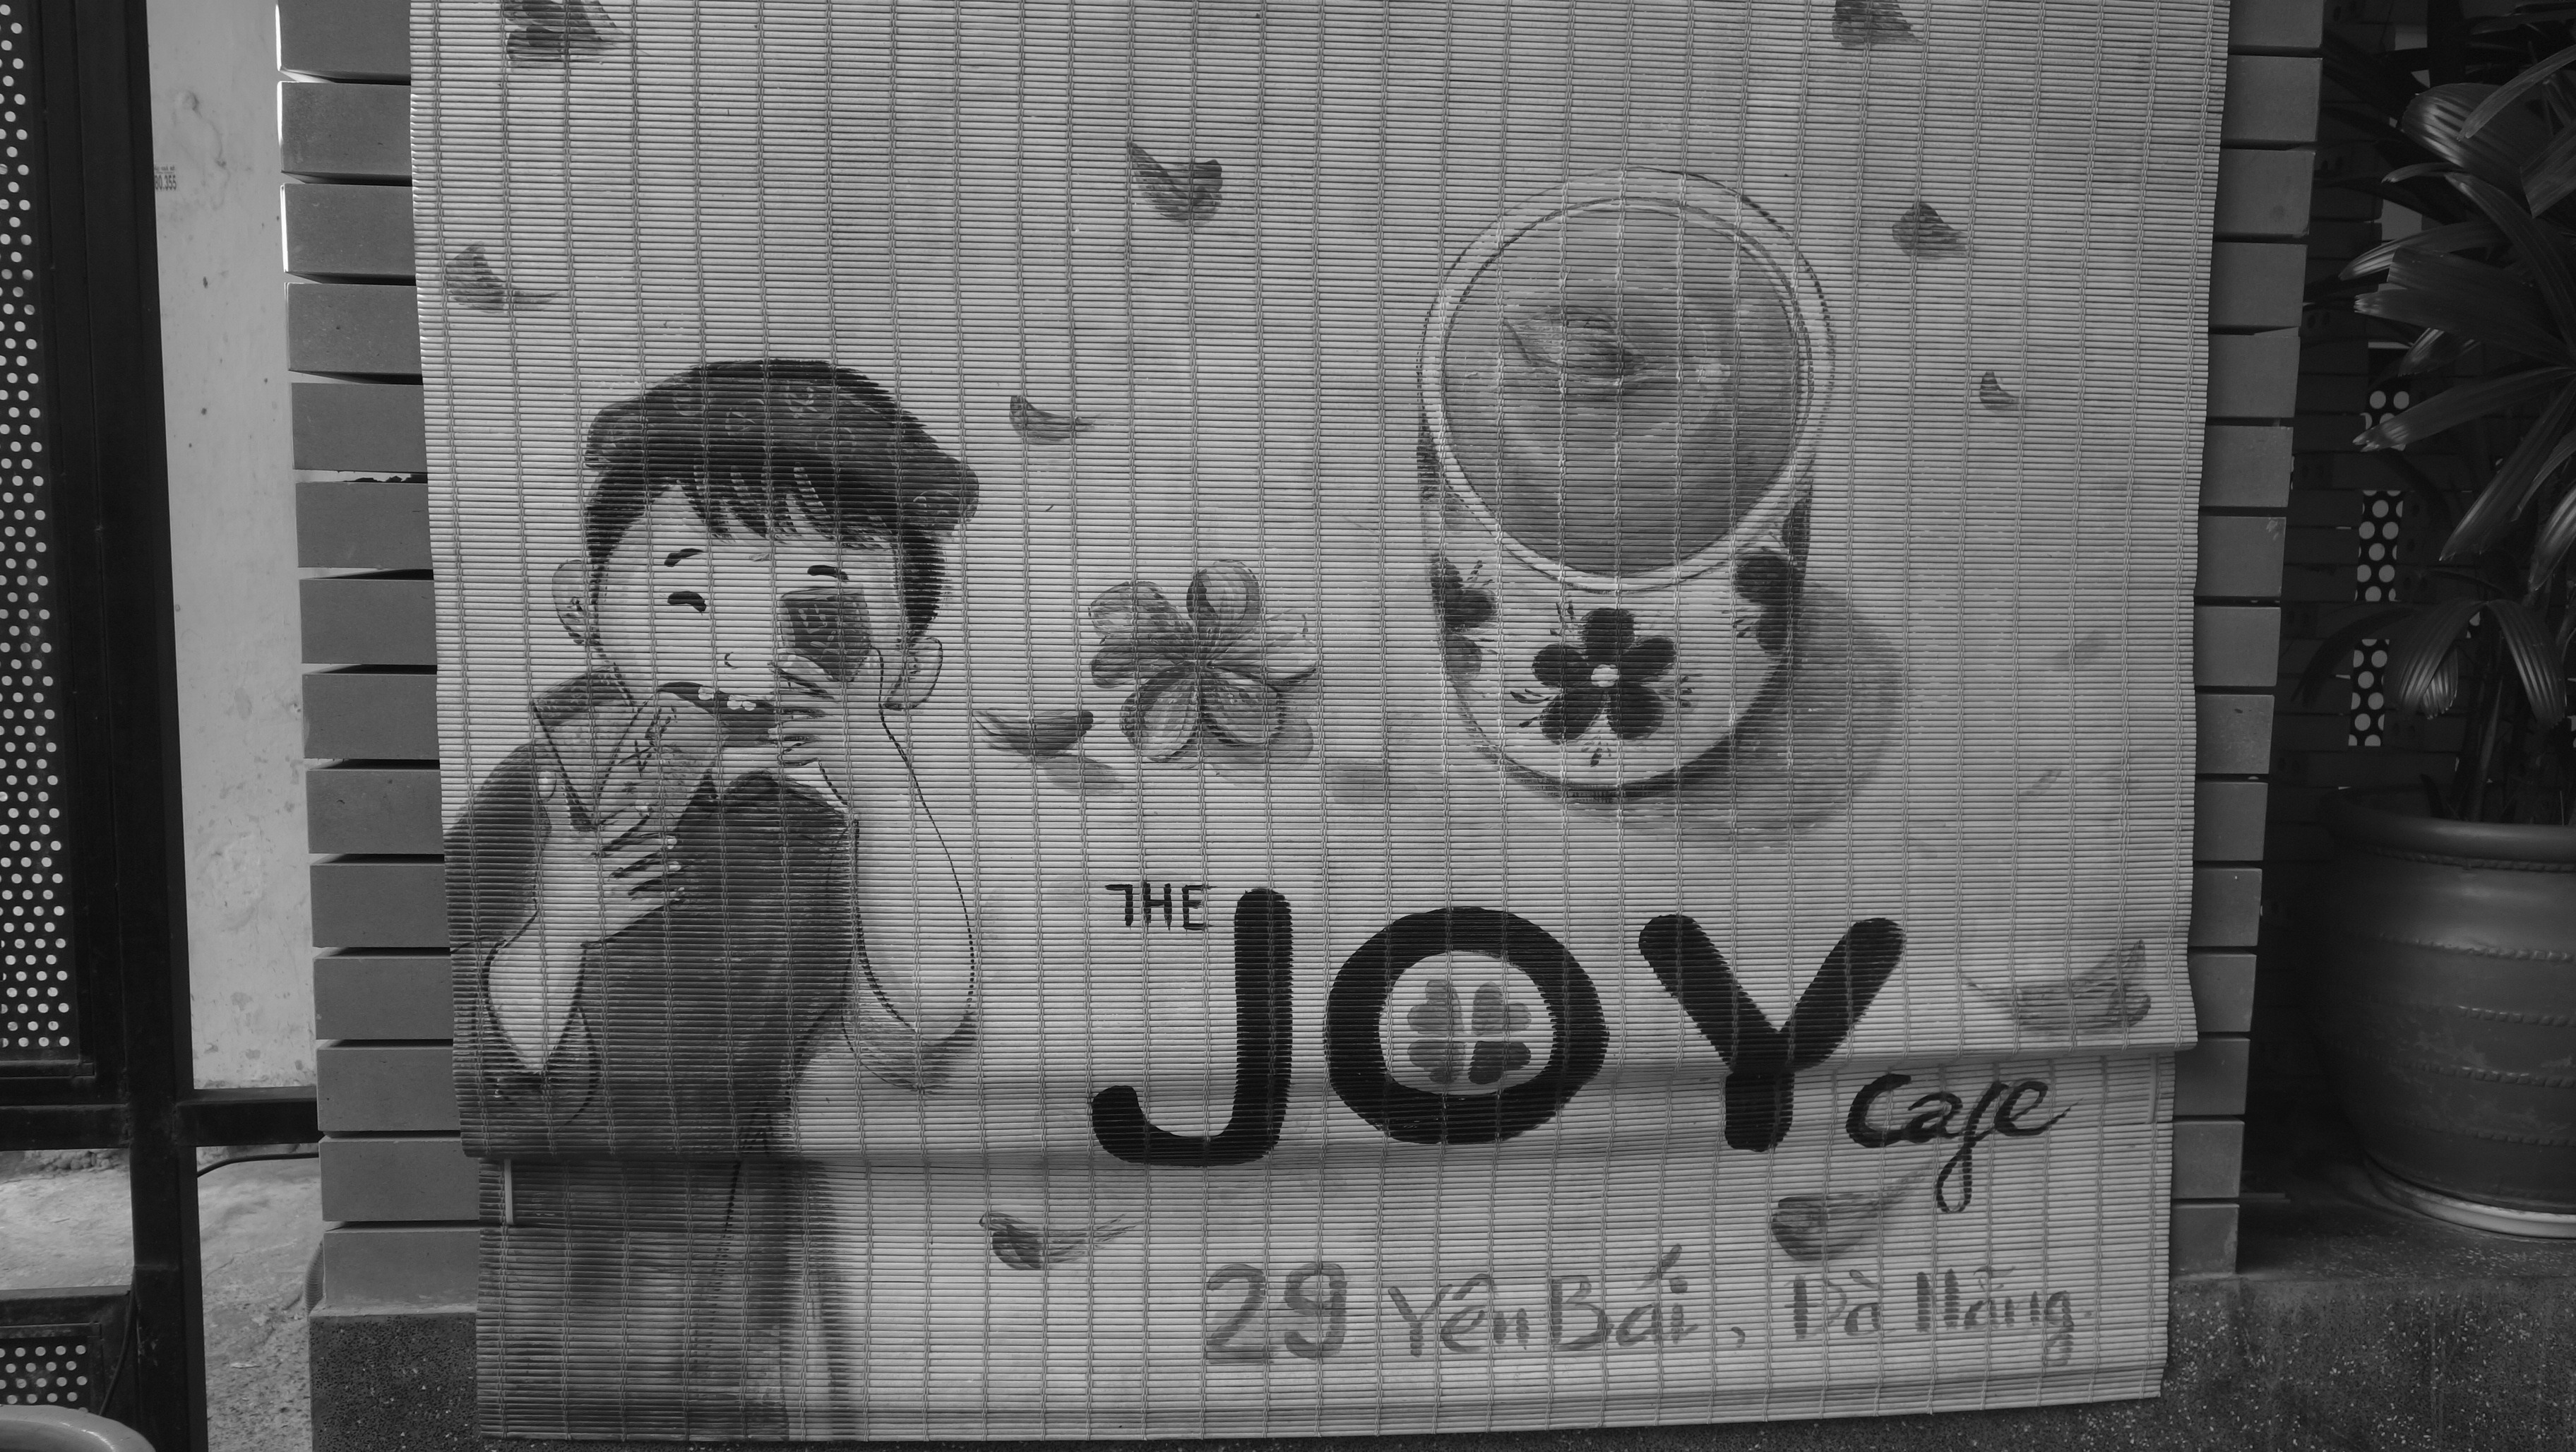 THE
JOY
cafe
29 Yên Bái, Đà Nẵng